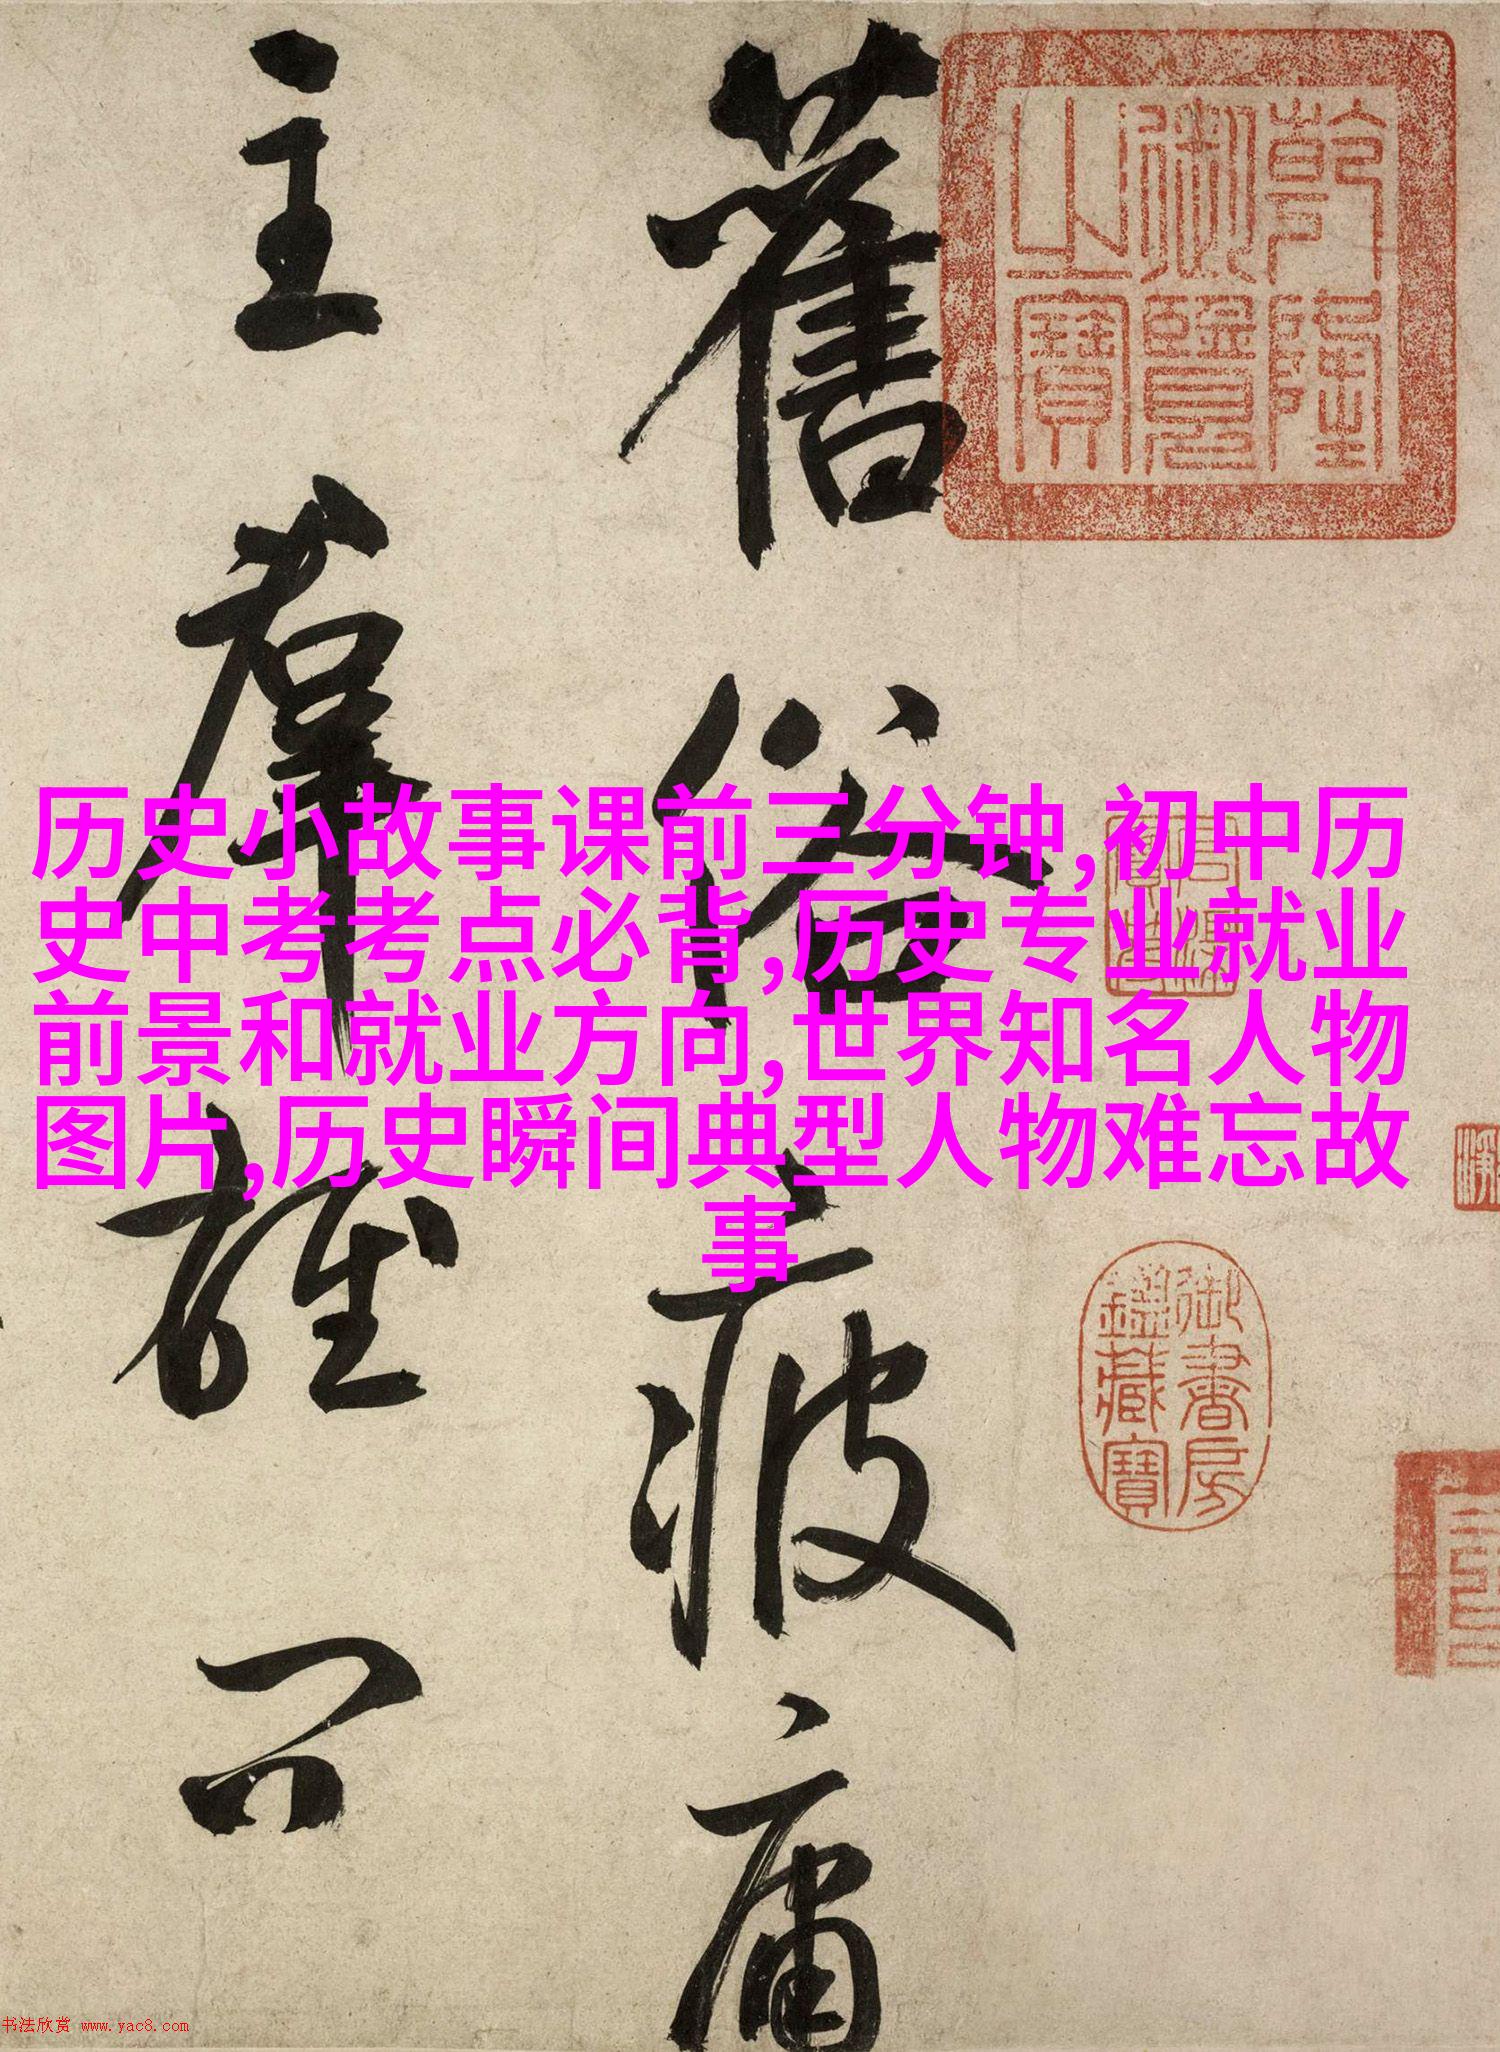 舊俗疲庸
主羣雄不
乾隆御覽之寶
御書房鑑藏寶
历史小故事课前三分钟,初中历
史中考考点必背,历史专业就业
前景和就业方向,世界知名人物
图片,历史瞬间典型人物难忘故
事
书法欣赏 www.yac8.com